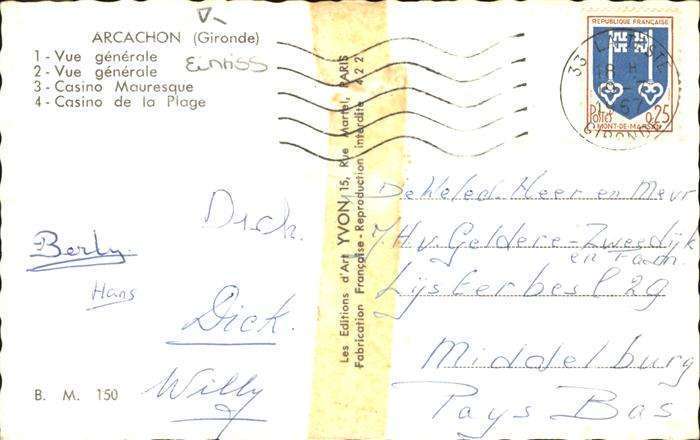 ARCACHON (Gironde)
1 - Vue générale
2 - Vue générale
3 - Casino Mauresque
4 - Casino de la Plage
Dick.
Berly.
Hans
Dick.
Willy
B. M. 150
Les Editions d'Art YVON, 15, Rue Martel, PARIS
Fabrication Française - Reproduction interdite
REPUBLIQUE FRANÇAISE
Postes 0,25
MONT-DE-MARSAN
33
GIRONDE
De Heer en Mevr
v. Geldere-Zweedijk
en Fam.
Lijsterbesl 29
Middelburg
Pays Bas